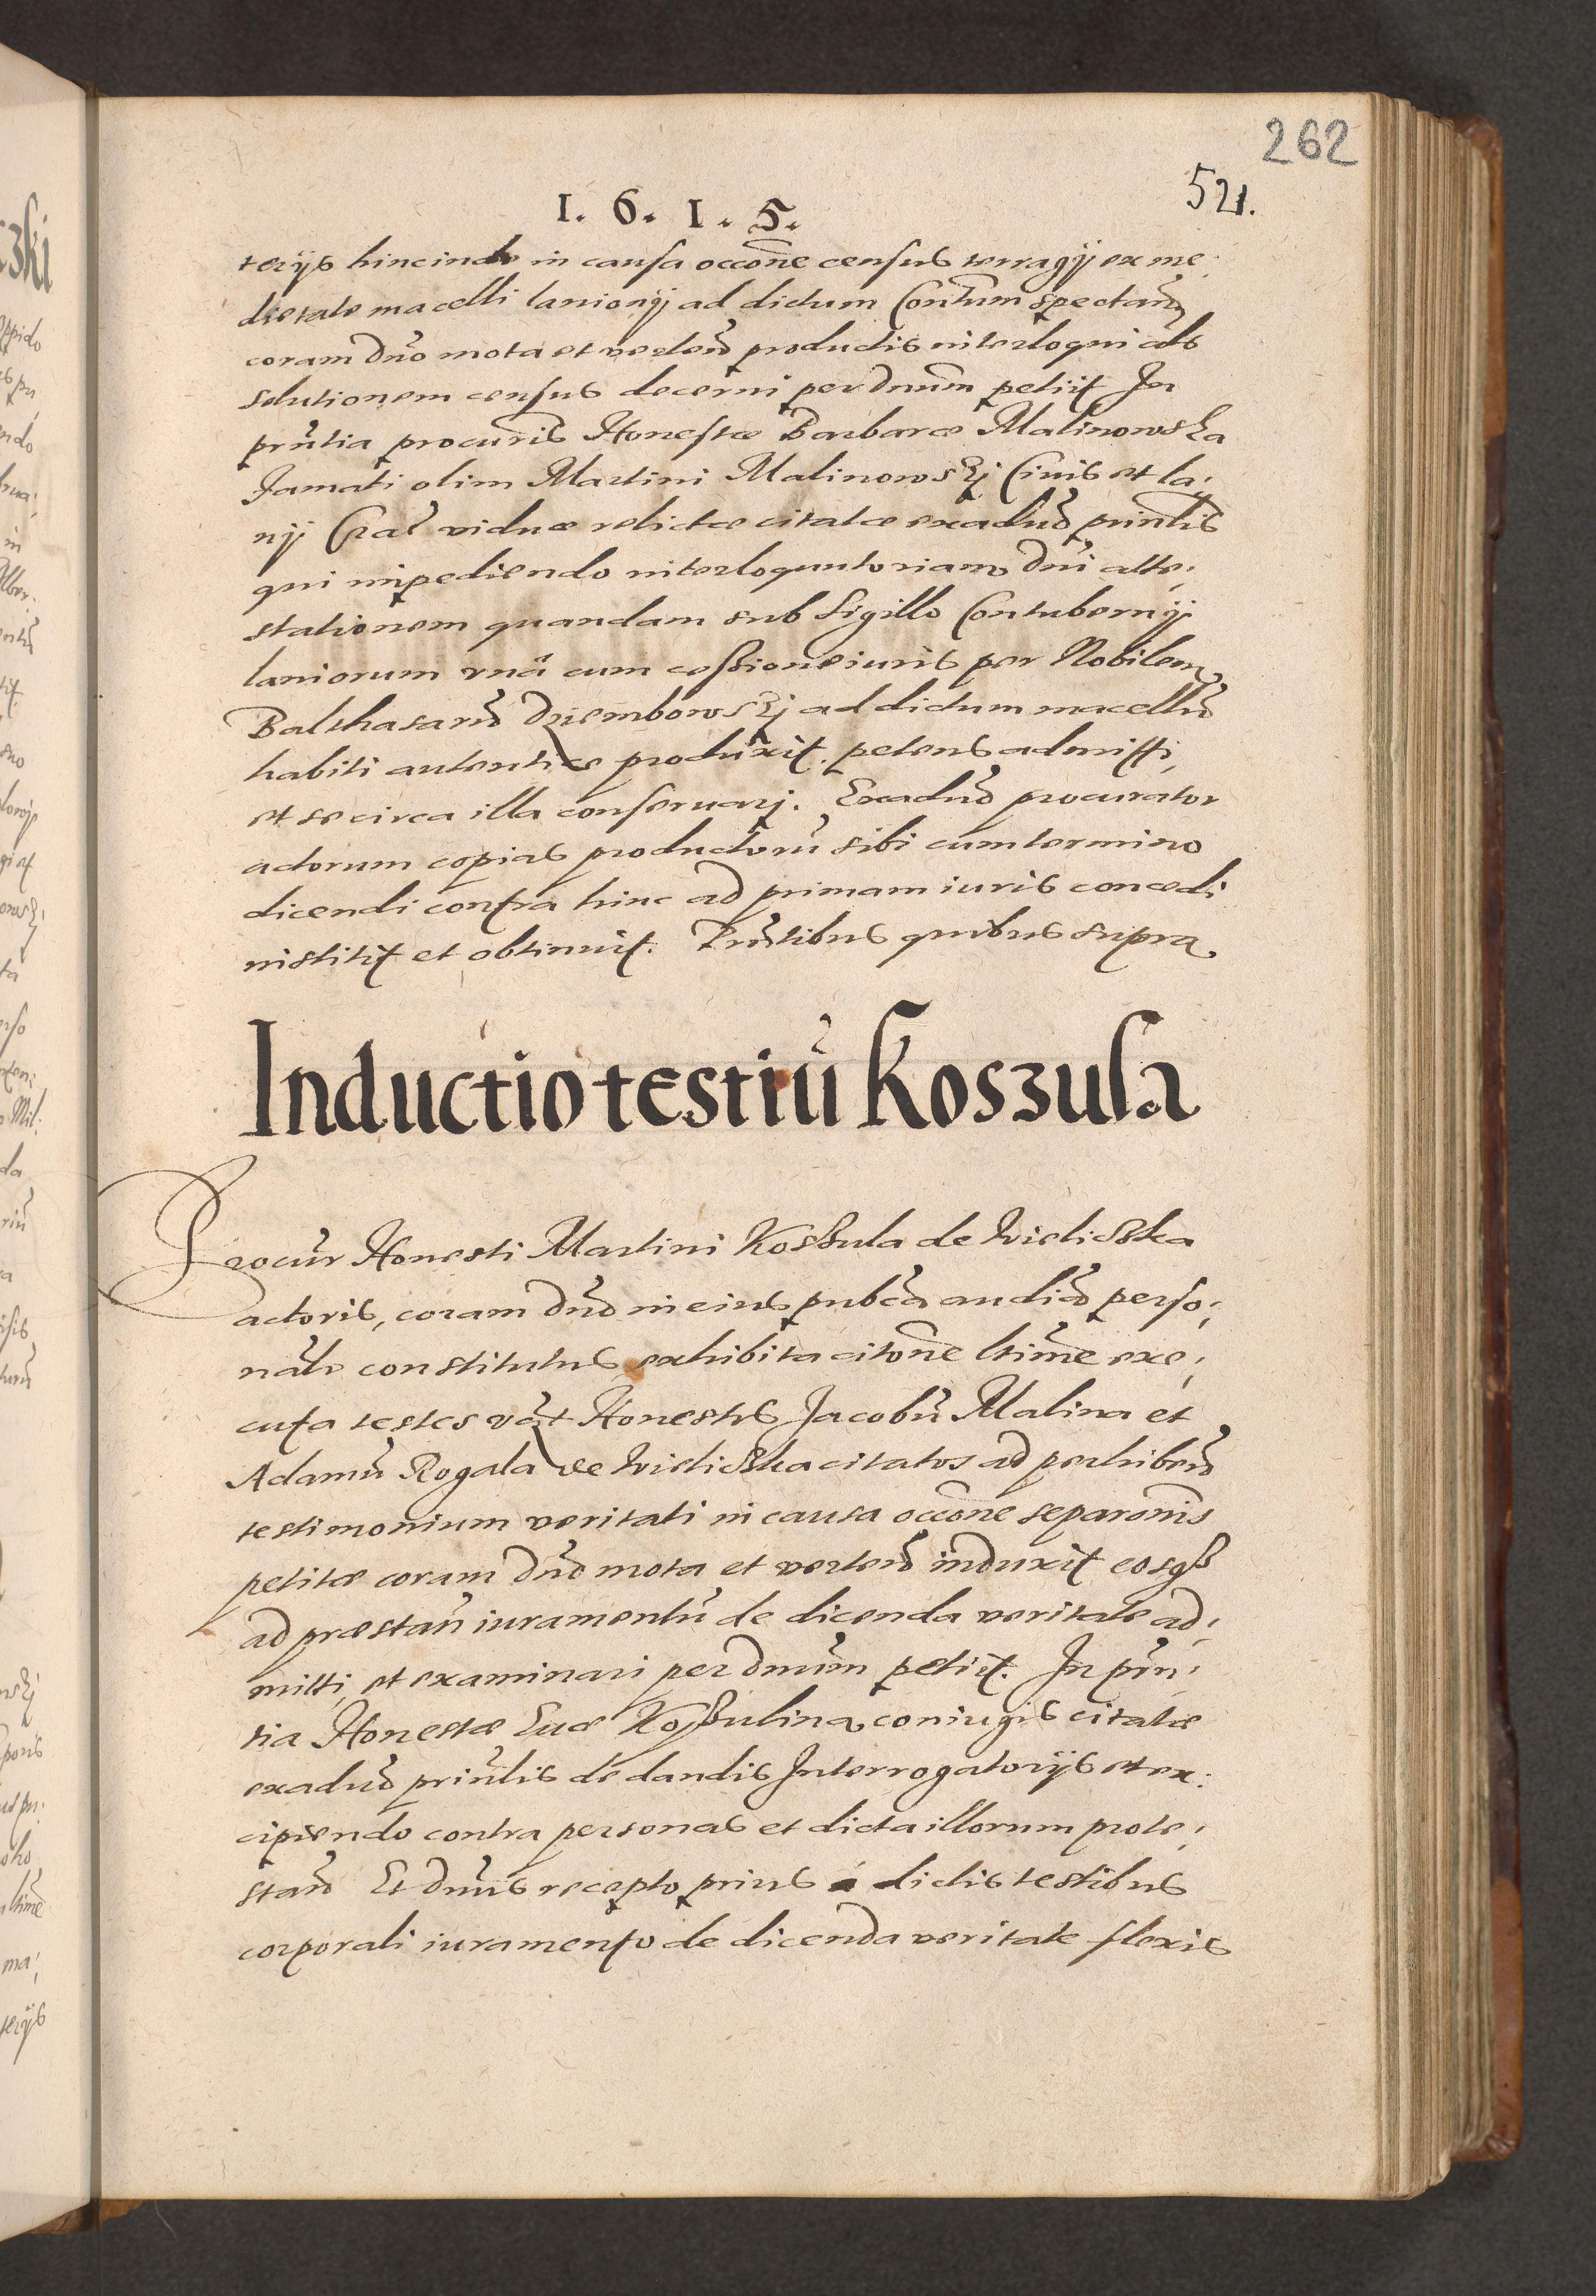 262
521.
1. 6. 1. 5.
terijs hincinde in causa occõne census terragij ex me:
dietate macelli lanionij ad dictum Contum spectan
coram dno mota et verteñ productis interloqui als
solutionem census decerni per dnum petiit In
prñtia procuris Honestæ Barbaræ Malinowska
Famati olim Martini Malinowskj Ciuis et la:
nij Craĉ viduæ relictæ citatæ exaduõ prinlis
qui impediendo interloquutoriam dni atte:
stationem quandam sub Sigillo Contubernij
laniorum vnà cum cessione iuris per Nobilem
Balthasarũ Dziembowskj ad dictum macellũ
habiti autenticè produxit. petens admitti,
et se circa illa conseruarj. Exaduõ procurator
actorum copias productorũ sibi cum termino
dicendi contra hinc ad primam iuris concedi
institit et obtinuit. Prñtibus quibus supra.
Inductio testiũ Koszula
Procur Honesti Martini Kossula de Wieliczka
actoris, coram dnõ in eius pubca audiã perso:
nalr constitutus exhibita citõne ltime exe:
cuta testes vãt Honestos Jacobũ Malina et
Adamũ Rogala de Wieliczka citatos ad perhibeñ
testimonium veritati in causa occõne separõnis
petitæ coram dnõ mota et verteñ induxit eosqȝ
ad præstañ iuramentũ de dicenda veritate ad:
mitti, et examinari per dnum petiit. In prñ:
tia Honestæ Euæ Kossulina coniugis citatæ
exaduõ prinlis de dandis Interrogatorijs et ex:
cipiendo contra personas et dicta illorum prote:
stañ Et dnus recepto prius à dictis testibus
corporali iuramento de dicenda veritate flexis